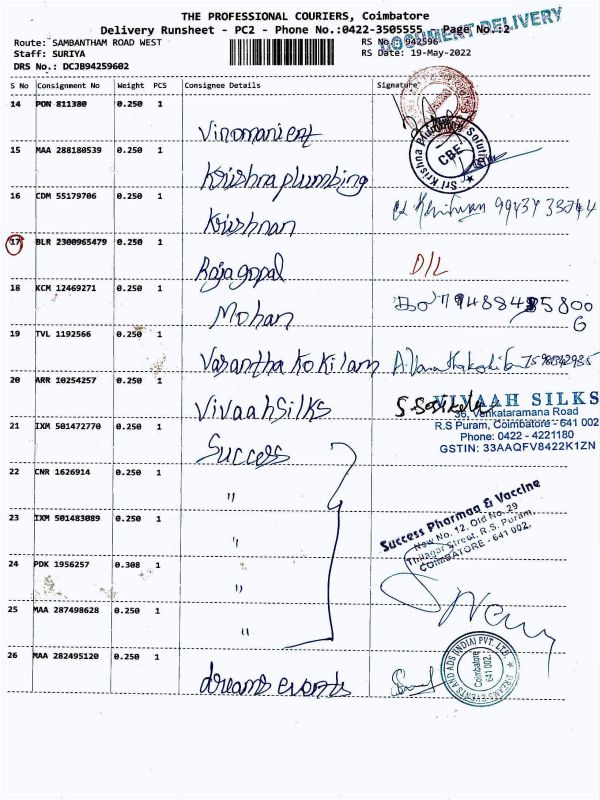 THE PROFESSIONAL COURIERS, Coimbatore
Delivery Runsheet - PC2 - Phone No.:0422-3505555 Page No.:2
DOCUMENT DELIVERY
Route: SAMBANTHAM ROAD WEST RS No.: 942596
Staff: SURIYA RS Date: 19-May-2022
DRS No.: DCJB94259602
S No Consignment No Weight PCS Consignee Details Signature
14 PON 811380 0.250 1
15 MAA 288180539 0.250 1 Krishna plumbing
Sri Krishna Plumbing Solutions CBE
16 CDM 55179706 0.250 1 Krishnan
17 BLR 2300965479 0.250 1 Rajagopal D/L
18 KCM 12469271 0.250 1 Mohan
19 TVL 1192566 0.250 1 Vasantha Kokilam
20 ARR 10254257 0.250 1 Vivaah Silks
VIVAAH SILKS
36, Venkataramana Road
R.S Puram, Coimbatore - 641 002
Phone: 0422 - 4221180
GSTIN: 33AAQFV8422K1ZN
21 IXM 501472770 0.250 1 Success
22 CNR 1626914 0.250 1 "
23 IXM 501483089 0.250 1 "
Success Pharmaa & Vaccine
New No. 12, Old No. 29
Thilagar Street, R.S. Puram,
COIMBATORE - 641 002.
24 PDK 1956257 0.308 1 "
25 MAA 287498628 0.250 1 "
26 MAA 282495120 0.250 1 dreams events
DREAMS EVENTS AND ADS (INDIA) PVT. LTD.
Coimbatore
641 002.